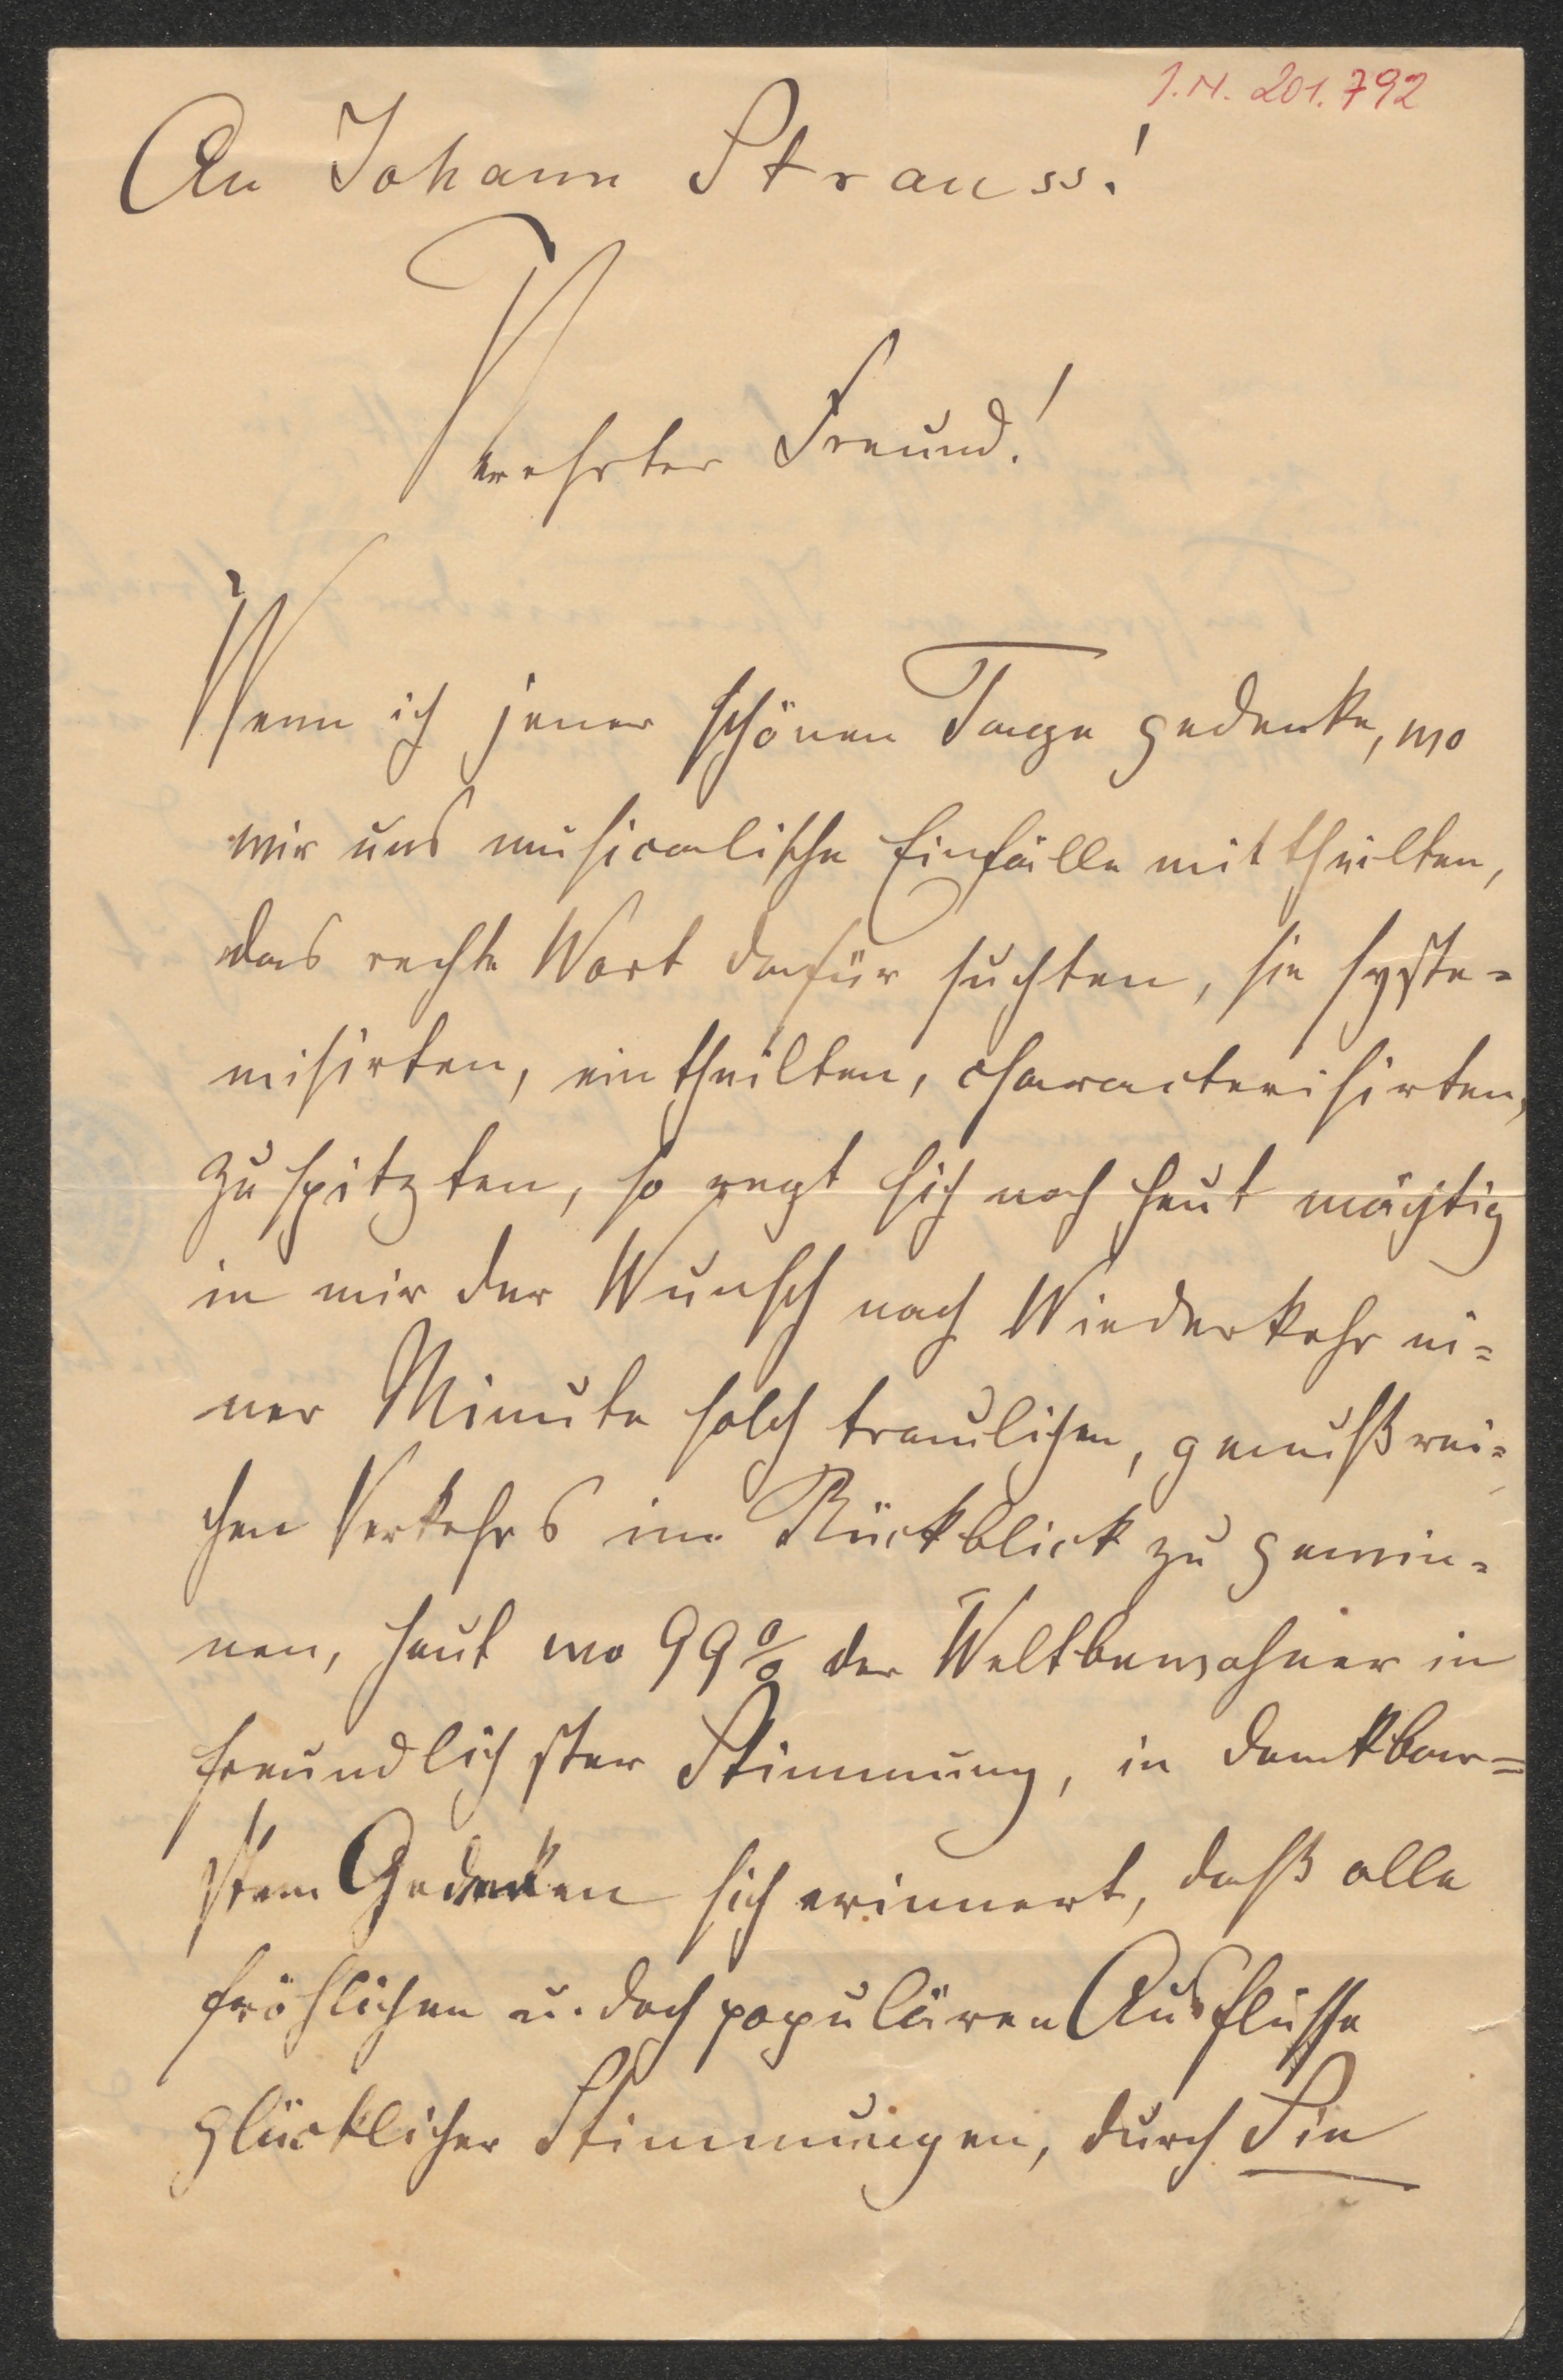 J.N. 201.792
An Johann Strauss!
Verehrter Freund!
Wenn ich jener schönen Tage gedenke, wo
wir uns musicalische Einfälle mittheilten,
das rechte Wort dafür suchten, sie syste=
misirten, eintheilten, characterisirten,
zuspitzten, so regt sich noch heut mächtig
in mir der Wunsch nach Wiederkehr ei=
ner Minute solch traulichen, genußrei=
chen Verkehrs im Rückblick zu gewin=
nen, heut wo 99% der Weltbewohner in
freundlichster Stimmung, in dankbar=
stem Gedenken sich erinnert, daß alle
fröhlichen u. doch populären Ausflüsse
glücklicher Stimmungen, durch Sie